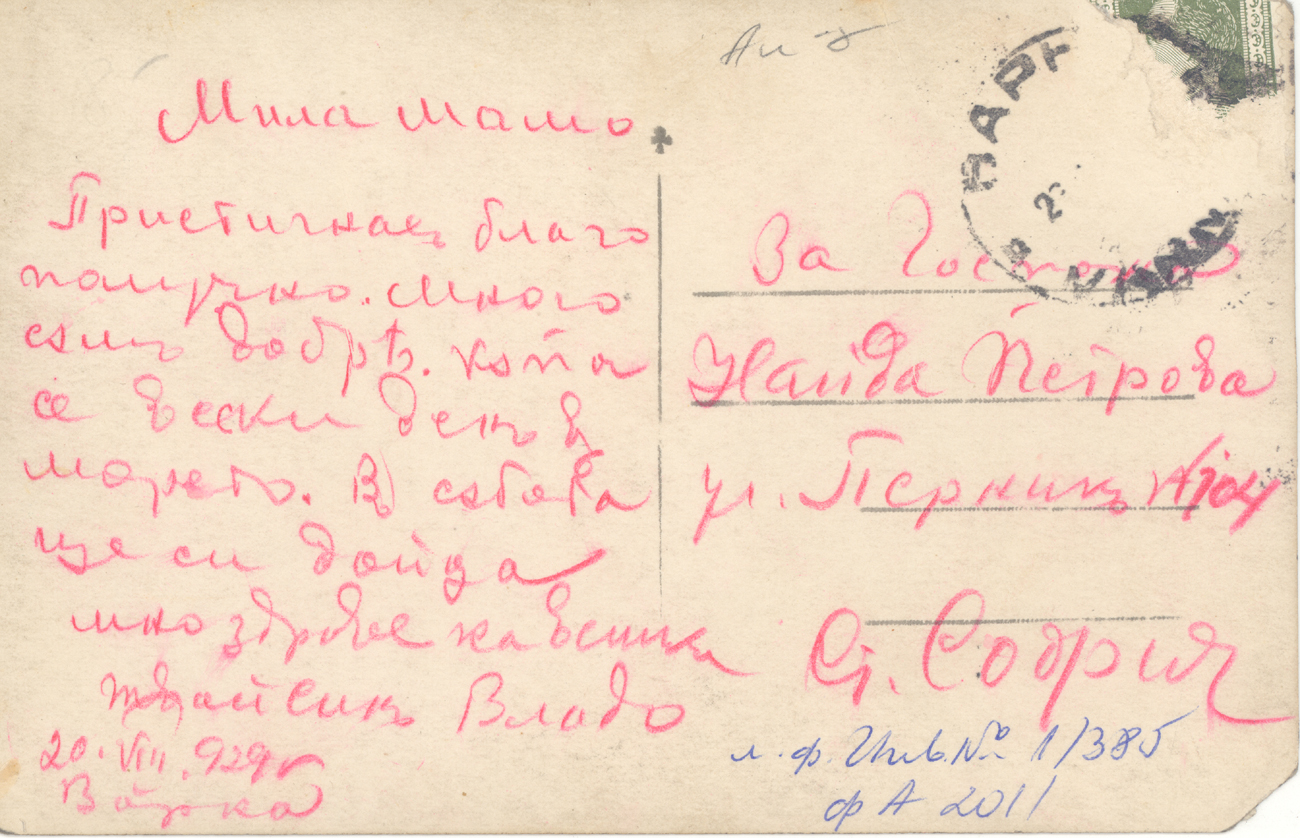 Мила мамо
Пристигнах благо
получно. Много
съмъ добрѣ. къпа
се всеки денъ в
морето. В събота
ще си дойда
мно здраве на всички
твой синъ Владо
20. VIII. 929 г
Варна
ВАРН
За Госпожа
Найда Петрова
ул. Перникъ №
Ст. София
л. ф. Инв. № 1/385
ф А 2011